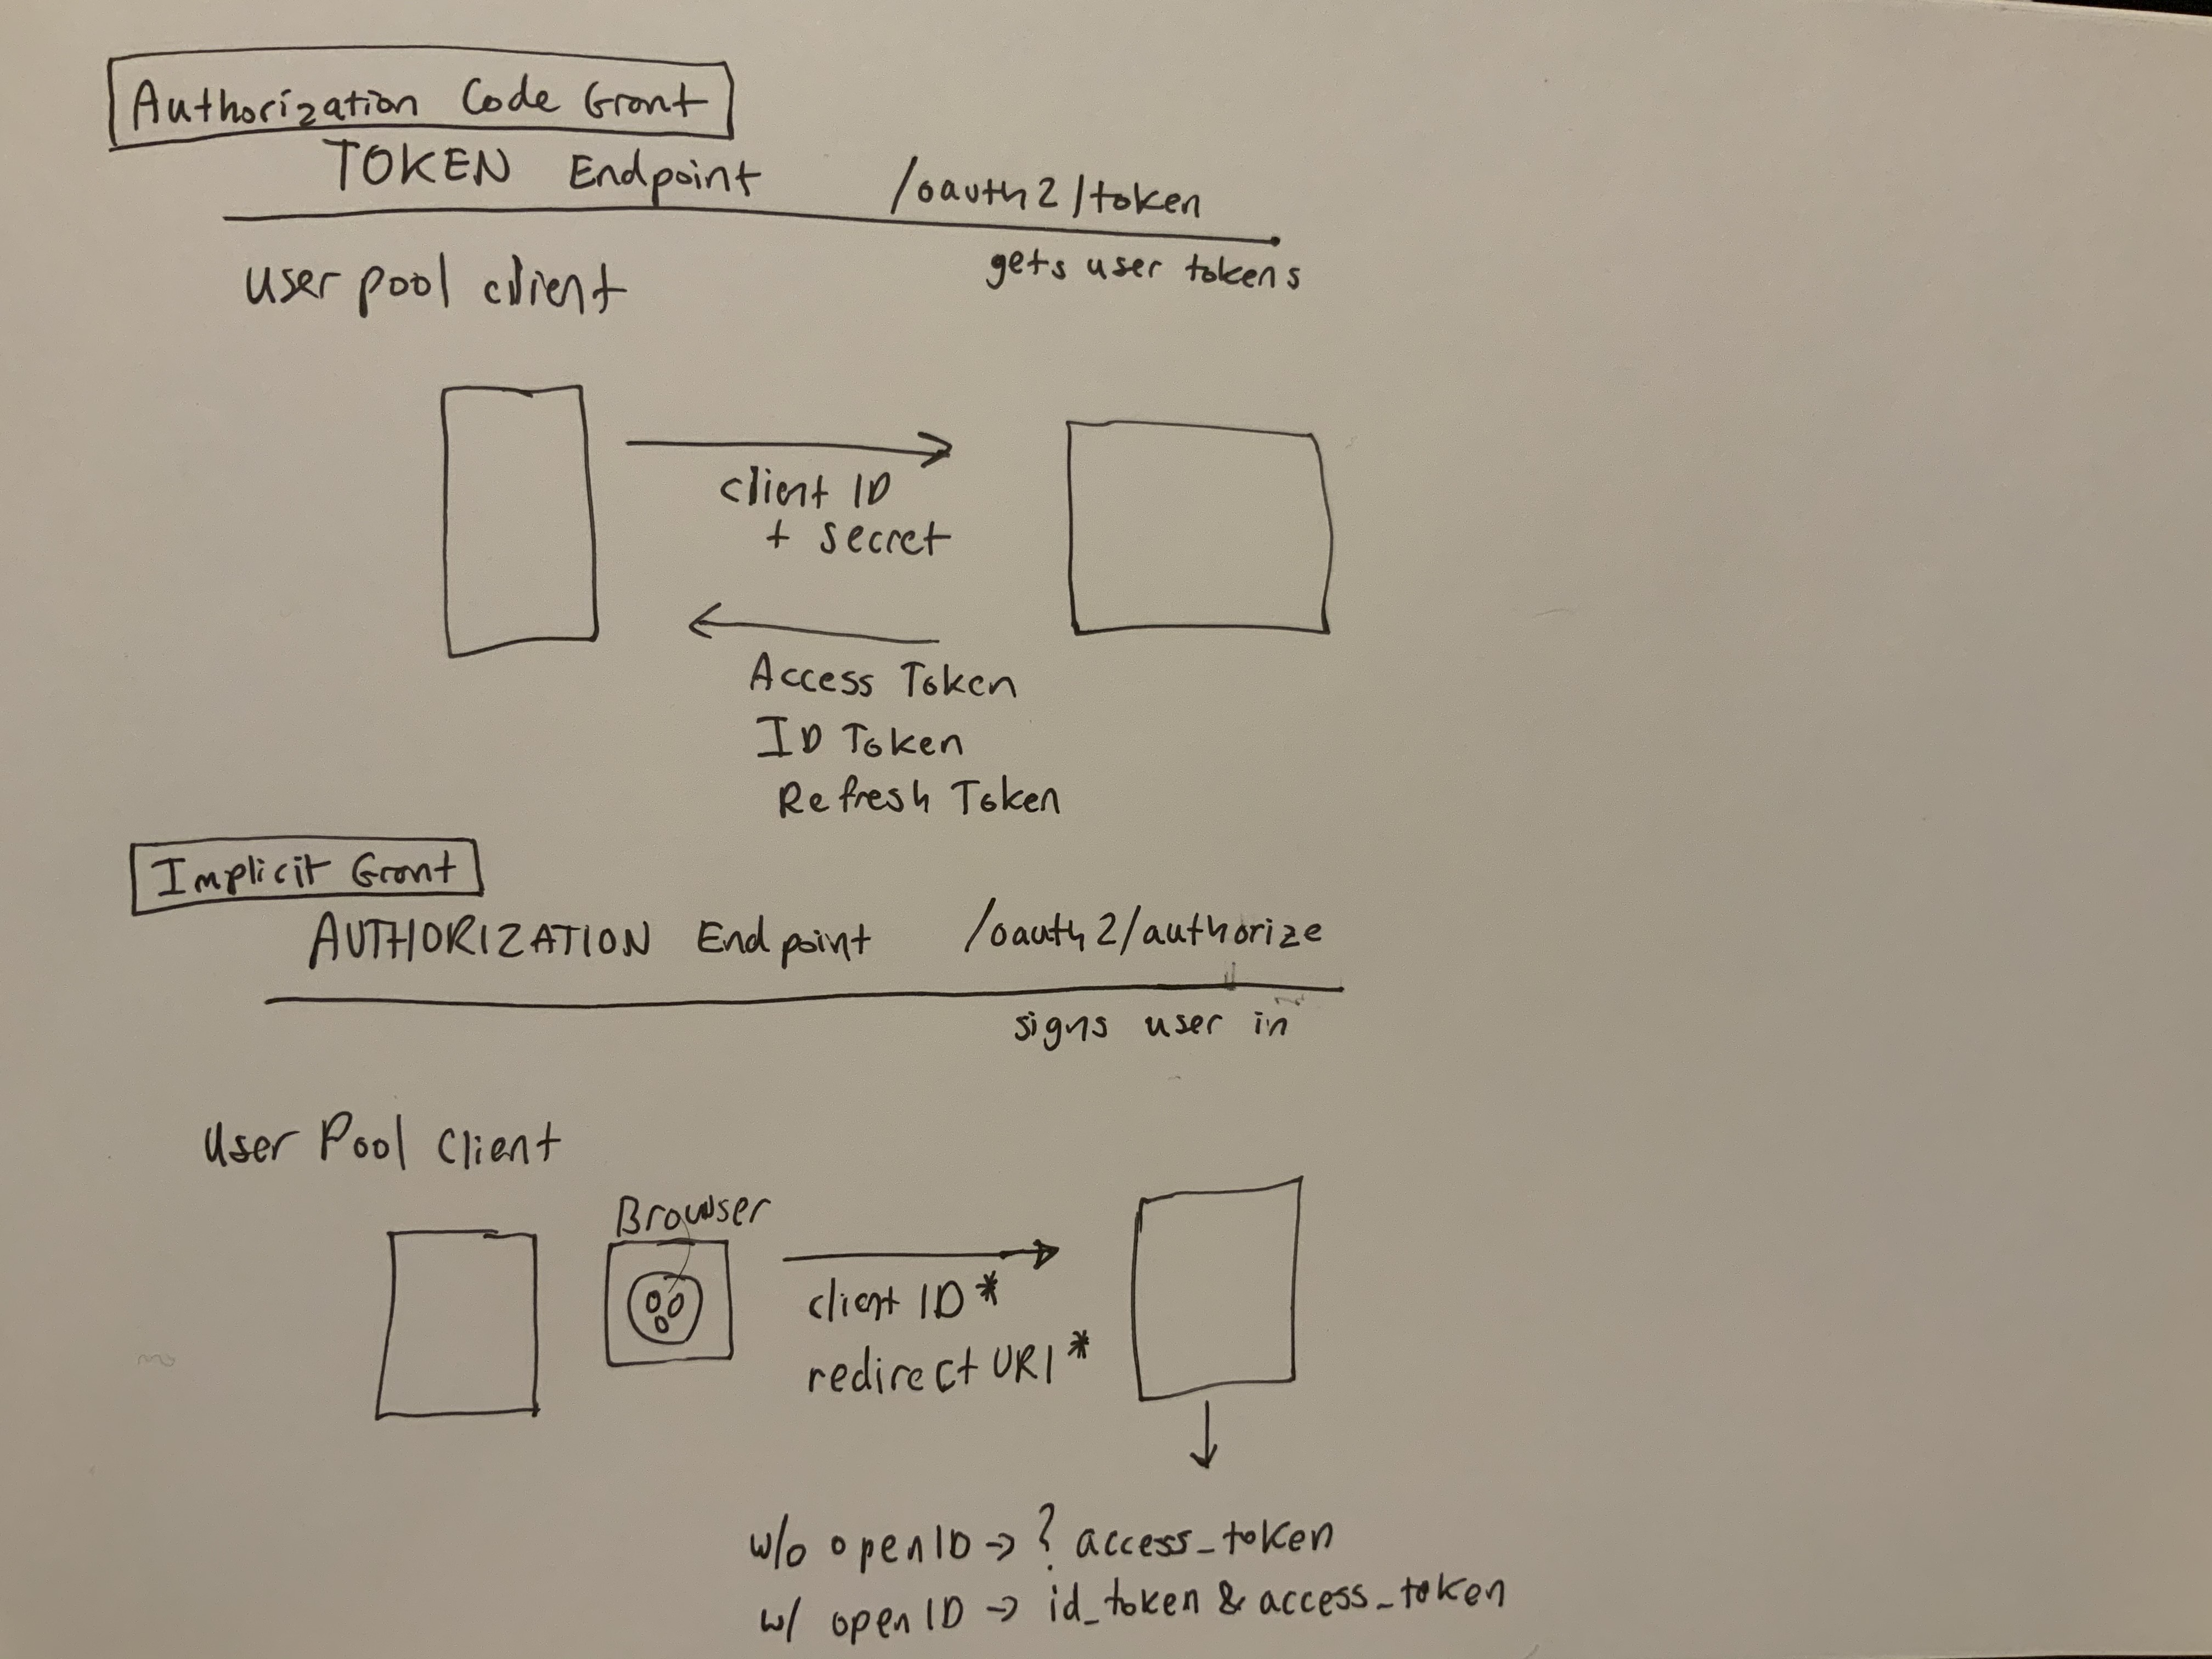 Authorization Code Grant
TOKEN Endpoint /oauth2/token
gets user tokens
user pool client
client ID
+ secret
Access Token
ID Token
Refresh Token
Implicit Grant
AUTHORIZATION Endpoint /oauth2/authorize
signs user in
User Pool Client
Browser
client ID*
redirect URI*
w/o openID → ? access_token
w/ openID → id_token & access_token